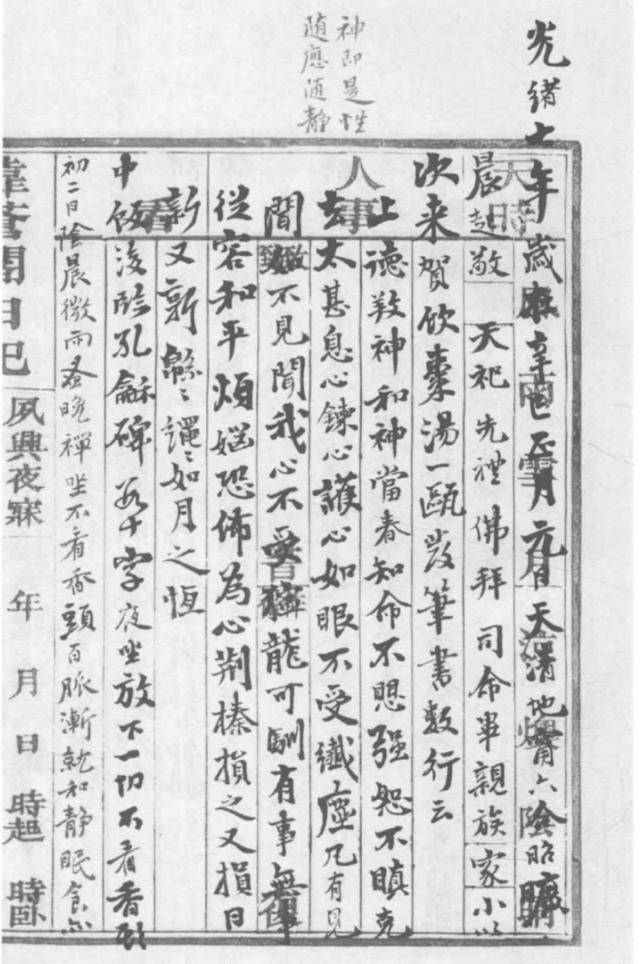 神即是性
随應随静
光緒七年歲在辛巳正月元日天清地甯六陰昭曠
晨起敬天祀先禮佛拜司命畢親族家小以
次来賀飲棗湯一甌發筆書數行云
上德敦神和神當春知命不思强恕不瞋克
去太甚息心鍊心護心如眼不受纖塵凡有見
聞如不見聞我心不受獰龍可馴有事無事
從容和平煩惱恐怖為心荆榛損之又損日
新又新緜緜繩繩如月之恆
中飯後臨孔龢碑若干字夜坐放下一切不看香頭
初二日陰晨微雨蚤晚禪坐不看香頭百脈漸就和静眠食亦
日記
夙興夜寐
年
月
日
時起
時卧
天時
人事